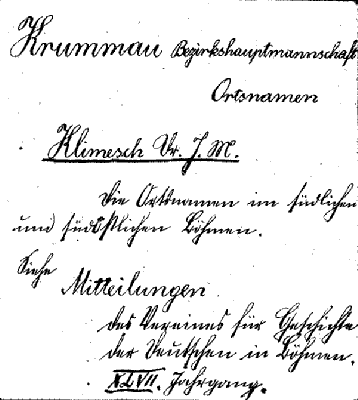 Krummau Bezirkshauptmannschaft
Ortsnamen
Klimesch Dr. J. M.
Die Ortsnamen im südlichen
und südöstlichen Böhmen.
Siehe
Mitteilungen
des Vereines für Geschichte
der Deutschen in Böhmen.
XLVII. Jahrgang.